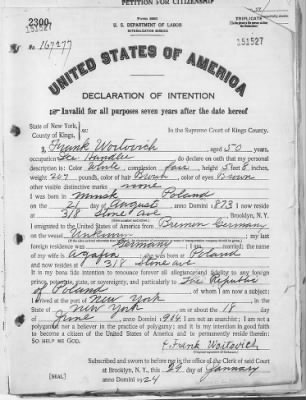 PETITION FOR CITIZENSHIP
2300
151527
U. S. DEPARTMENT OF LABOR
TRIPLICATE
151527
No. 167277
UNITED STATES OF AMERICA
DECLARATION OF INTENTION
Invalid for all purposes seven years after the date hereof
State of New York,
County of Kings, ss:
In the Supreme Court of Kings County.
I, Frank Woitovich aged 50 years,
occupation Ice Handler do declare on oath that my personal
description is: Color White complexion Fair height 5 feet 8 inches,
weight 207 pounds, color of hair Brown color of eyes Brown
other visible distinctive marks none
I was born in Minsk Poland
on the 21 day of August anno Domini 1873 now reside
at 318 Stone Ave Brooklyn, N. Y.
I emigrated to the United States of America from Bremen Germany
on the vessel my last
foreign residence was Germany I am married; the name
of my wife is Agafia she was born in Poland
and now resides at 318 Stone Ave
It is my bona fide intention to renounce forever all allegiance and fidelity to any foreign
prince, potentate, state, or sovereignty, and particularly to The Republic
of Poland of whom I am now a subject;
I arrived at the port of New York in the
State of New York on or about the 18 day
of June anno Domini 1914 I am not an anarchist; I am not a
polygamist nor a believer in the practice of polygamy; and it is my intention in good faith
to become a citizen of the United States of America and to permanently reside therein:
SO HELP ME GOD.
Frank Woitovich
Subscribed and sworn to before me in the office of the Clerk of said Court
at Brooklyn, N. Y., this 29 day of January
anno Domini 1924
[SEAL]